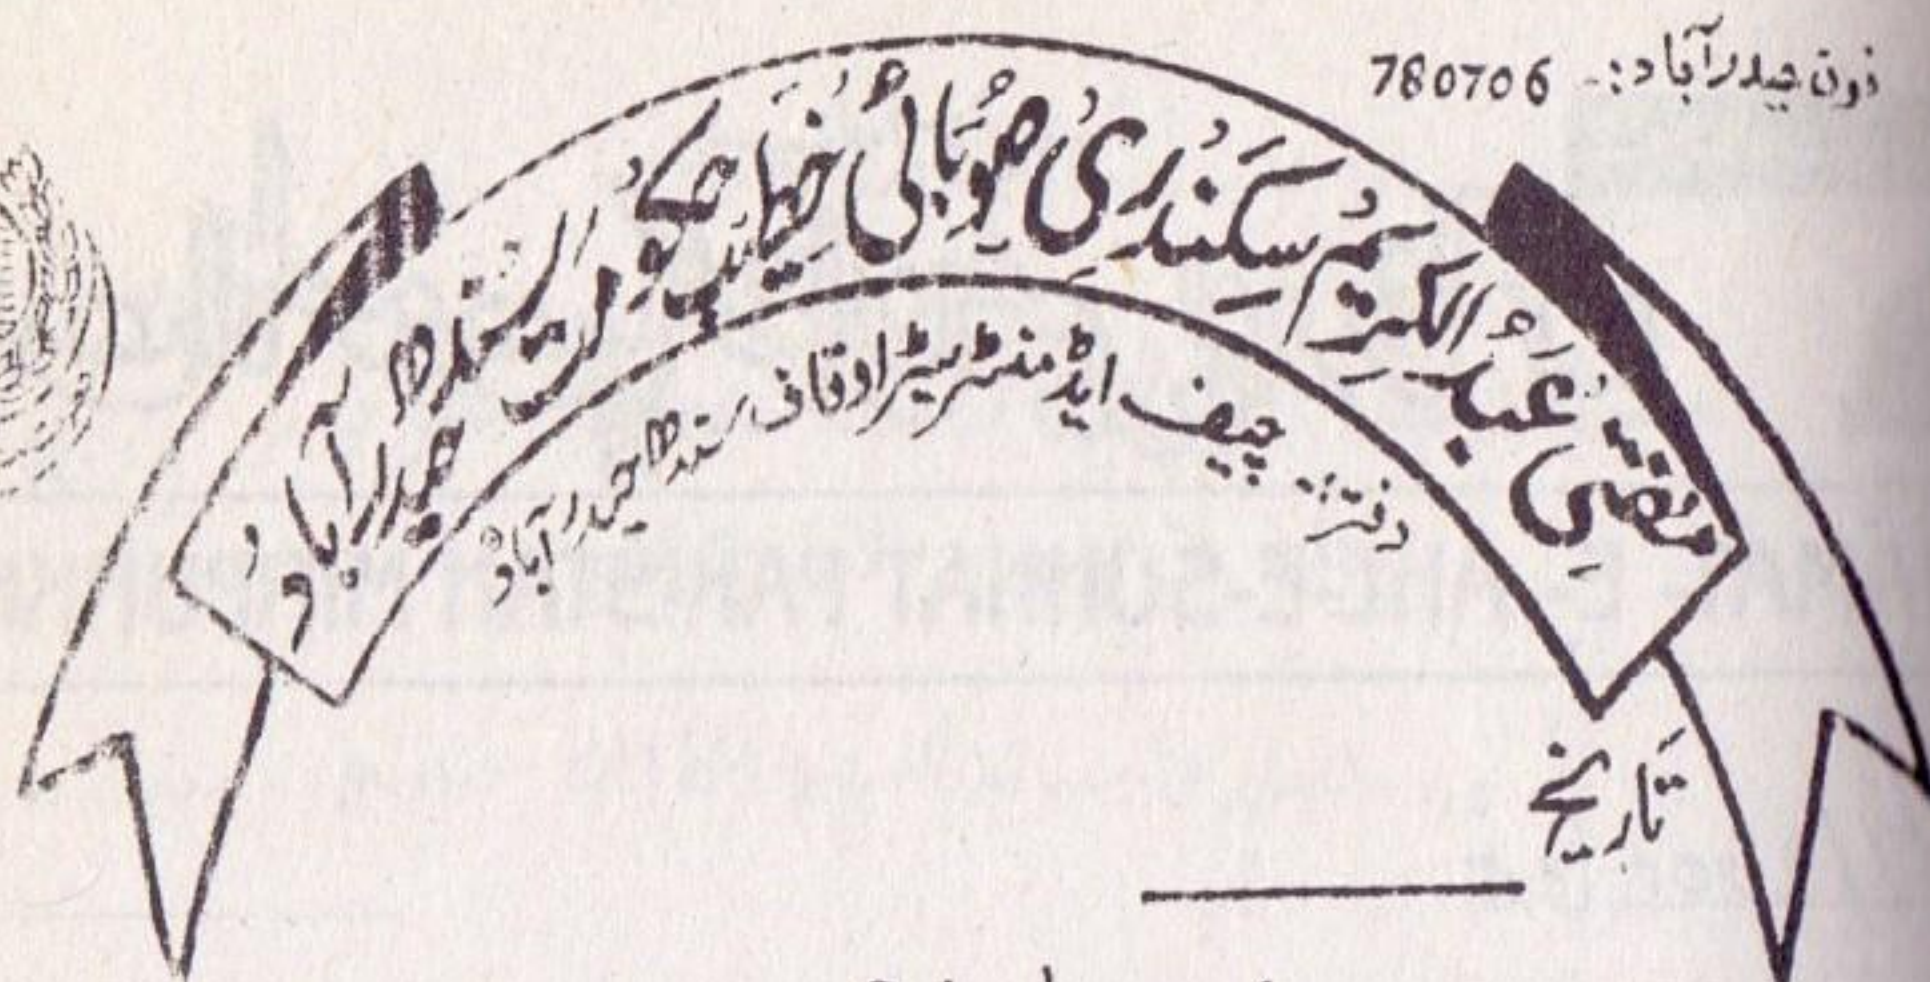 فون حيدرآباد:- 780706
مفتی عبد الکریم سکندری صوبائی خطیب حکومت سندھ حیدرآباد
دفتر:- چیف ایڈمنسٹریٹر اوقاف سندھ حیدرآباد
تاریخ